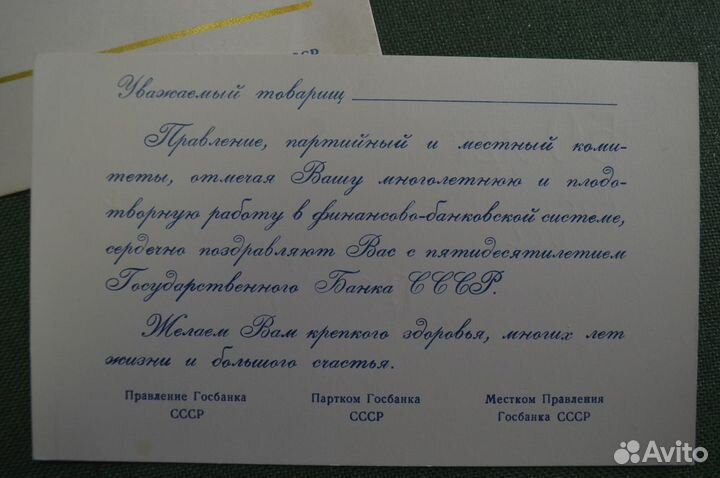 СССР
Уважаемый товарищ
Правление, партийный и местный коми-
теты, отмечая Вашу многолетнюю и плодо-
творную работу в финансово-банковской системе,
сердечно поздравляют Вас с пятидесятилетием
Государственного Банка СССР.
Желаем Вам крепкого здоровья, многих лет
жизни и большого счастья.
Правление Госбанка
СССР
Партком Госбанка
СССР
Местком Правления
Госбанка СССР
Avito